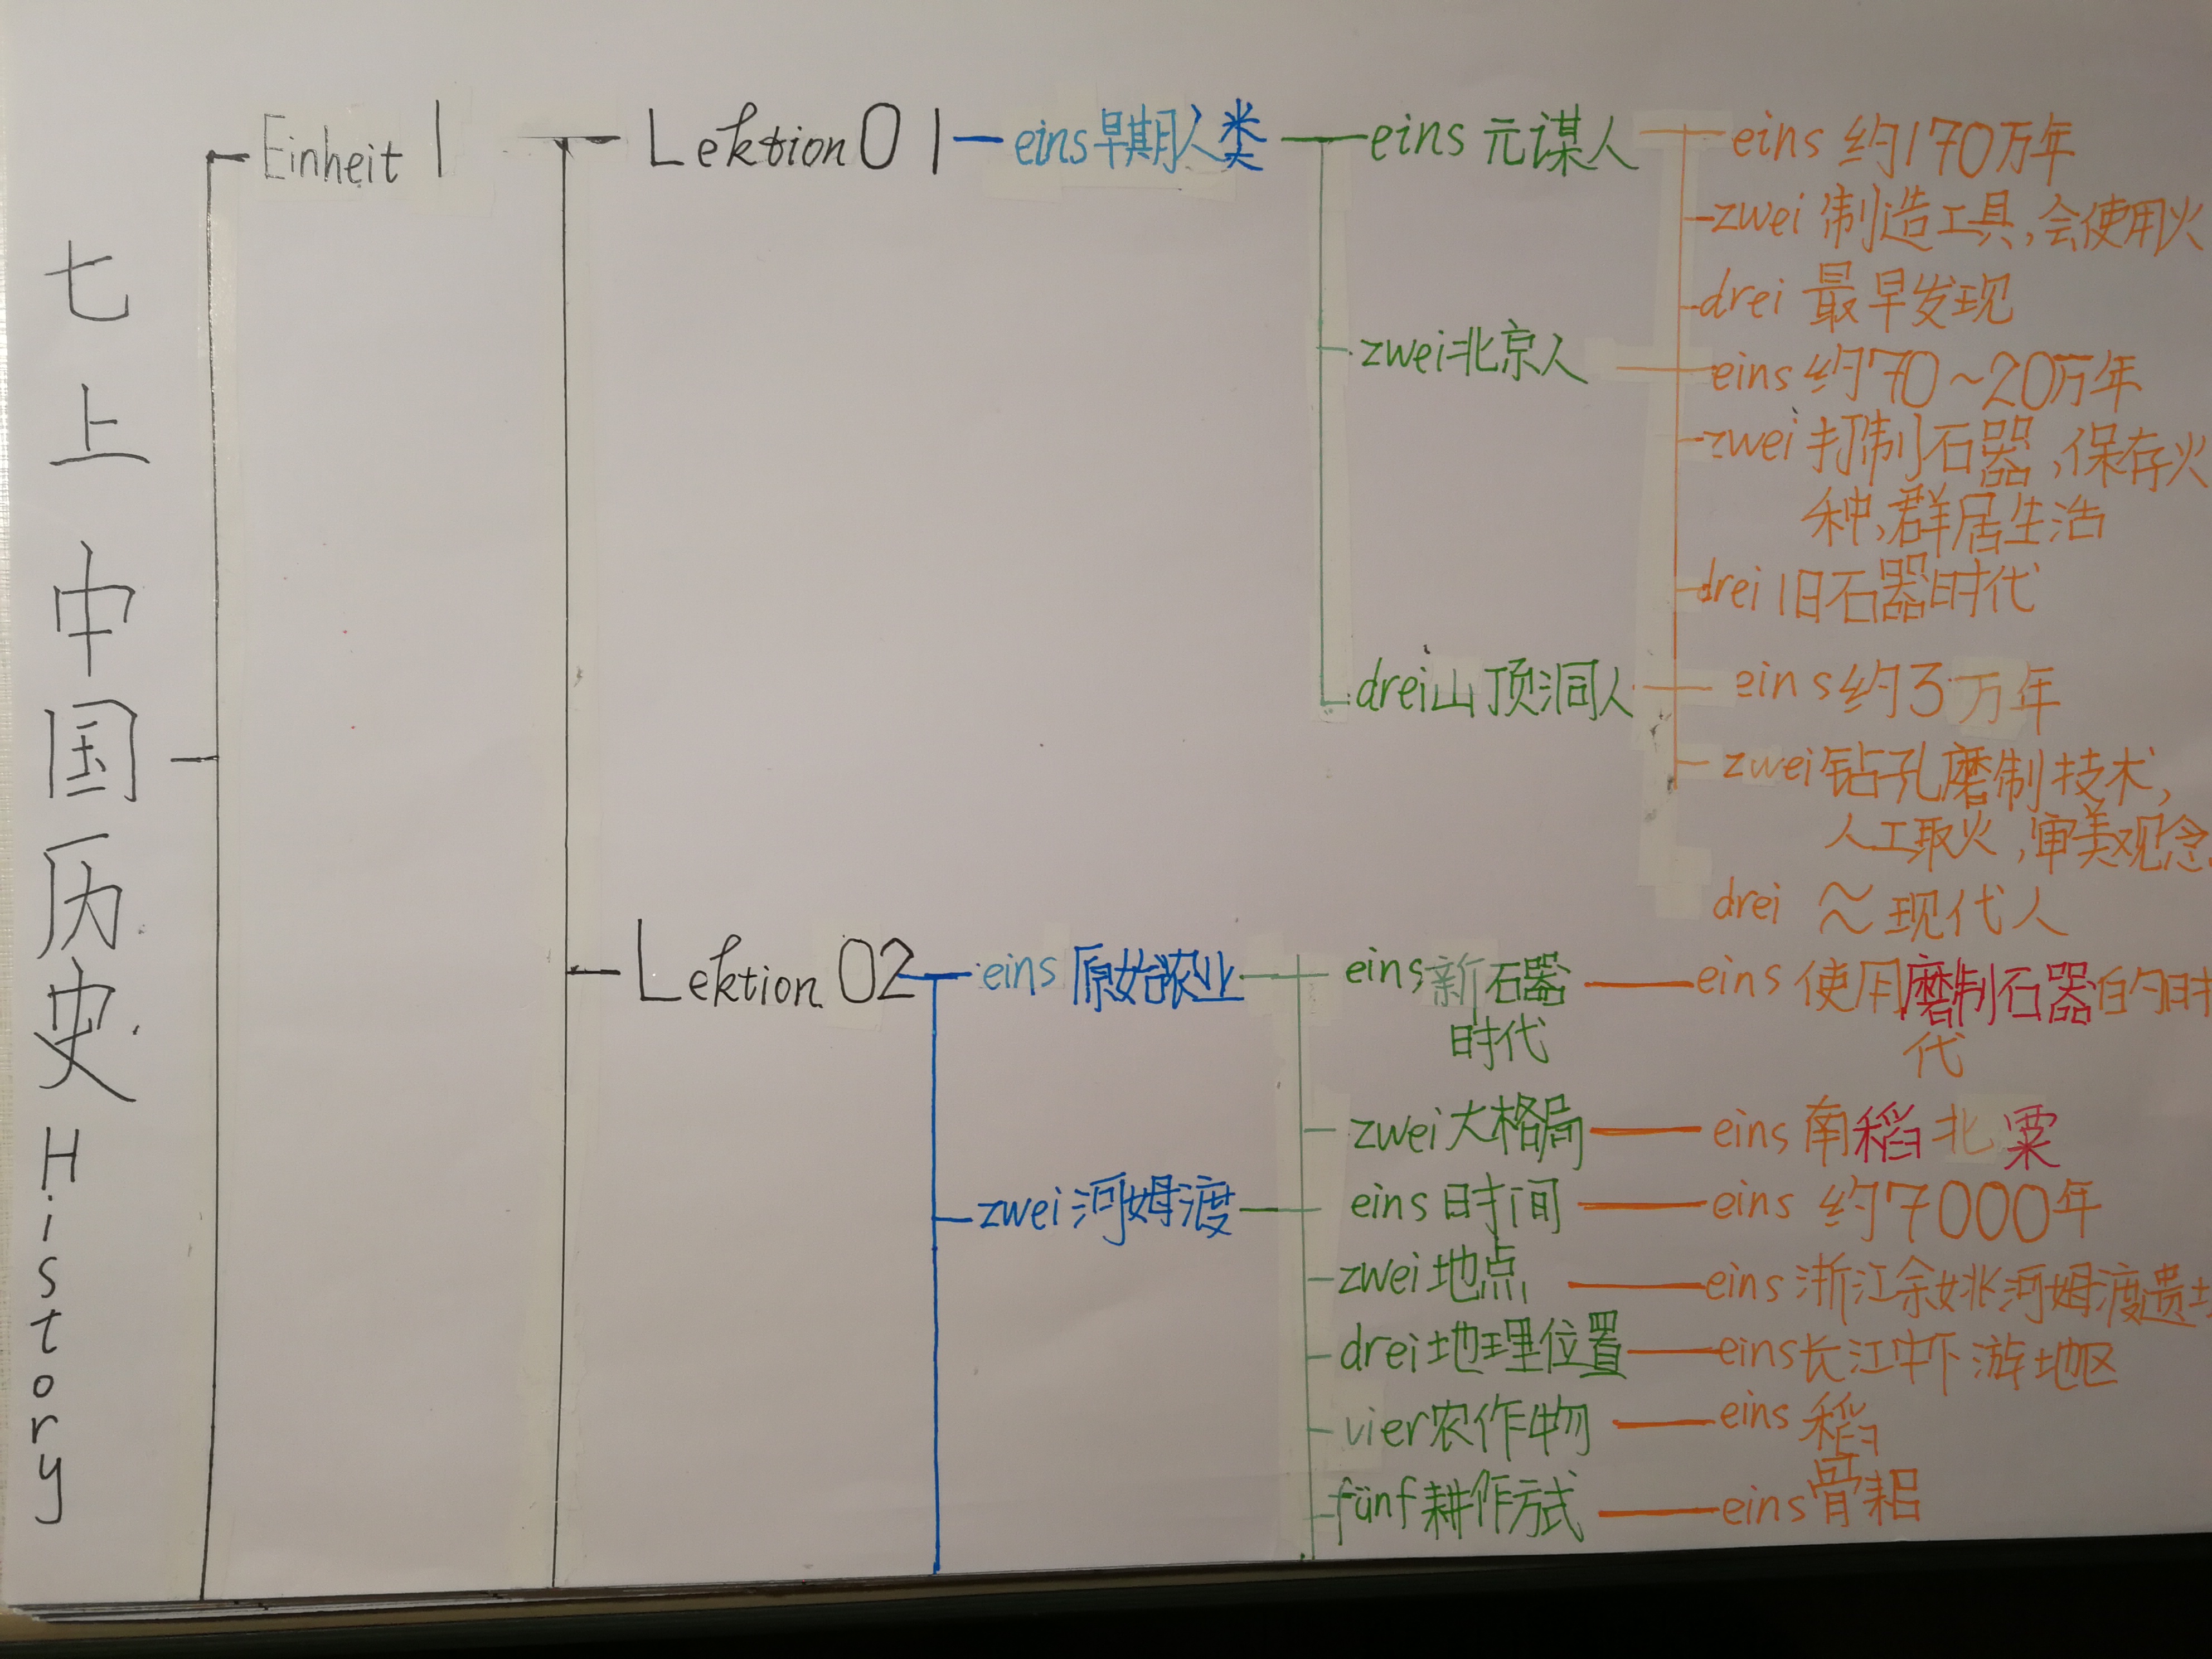 七上中国历史History
Einheit 1
Lektion 01
eins早期人类
eins 元谋人
eins 约170万年
zwei 制造工具,会使用火
drei 最早发现
zwei北京人
eins 约70~20万年
zwei 打制石器,保存火
种,群居生活
drei 旧石器时代
drei山顶洞人
eins约3万年
zwei钻孔磨制技术,
人工取火,审美观念.
drei ≈现代人
Lektion 02
eins 原始农业
eins新石器
时代
eins 使用磨制石器的时
代
zwei大格局
eins 南稻北粟
zwei河姆渡
eins时间
eins 约7000年
zwei地点
eins浙江余姚河姆渡遗址
drei地理位置
eins长江中下游地区
vier农作物
eins 稻
fünf耕作方式
eins骨耜